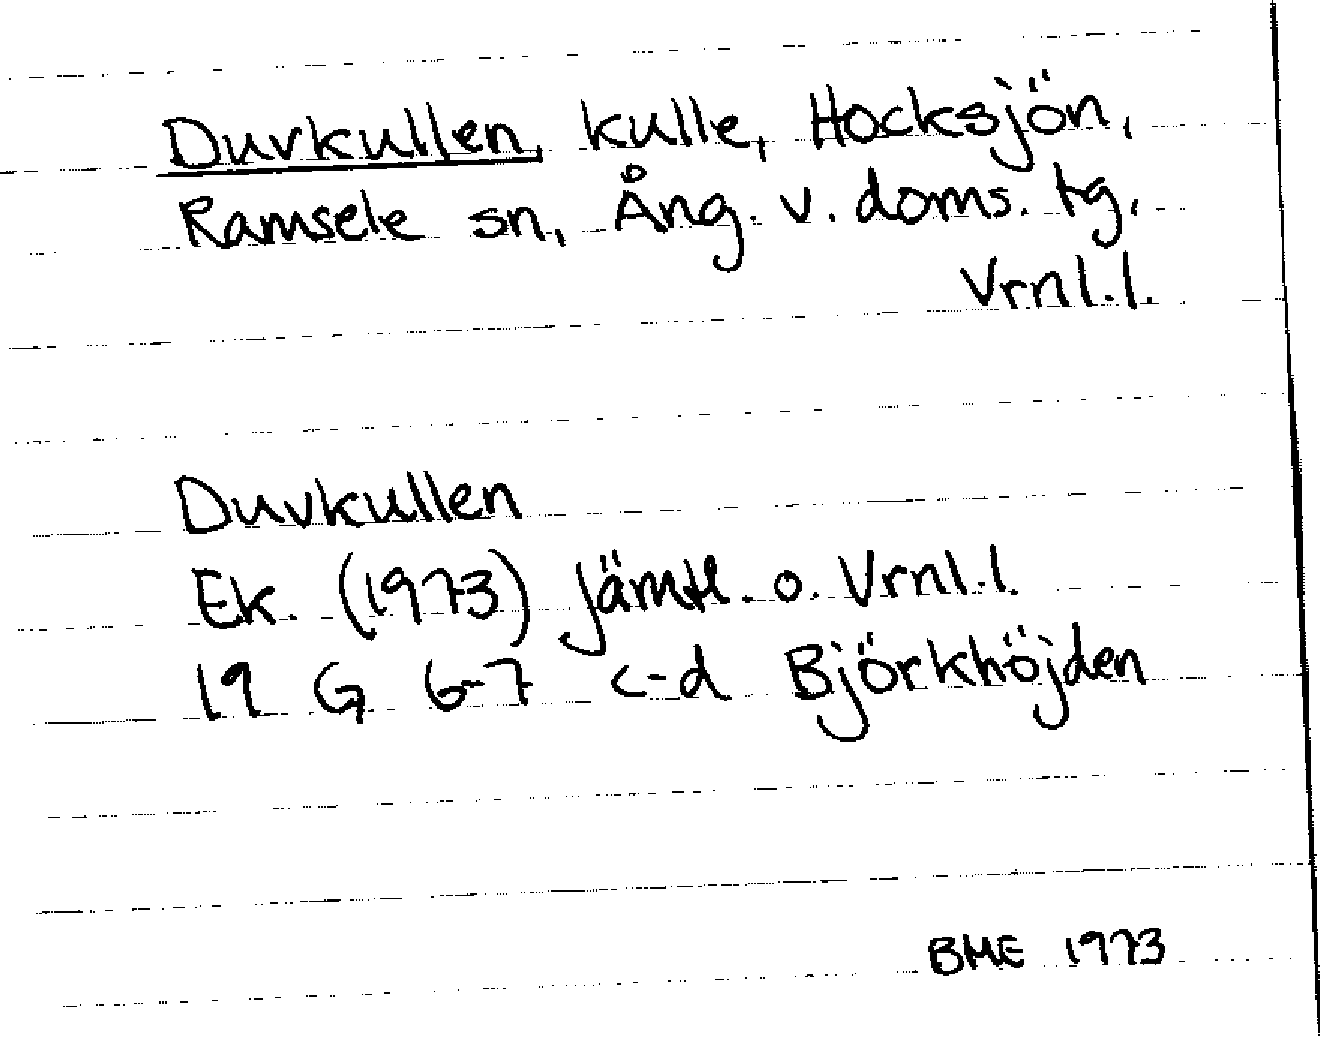 Duvkullen, kulle, Hocksjön,
Ramsele sn, Ång. v. doms. tg,
Vrnl.l.
Duvkullen
Ek. (1973) Jämtl. o. Vrnl.l.
19 G 6-7 c-d Björkhöjden
BME 1973